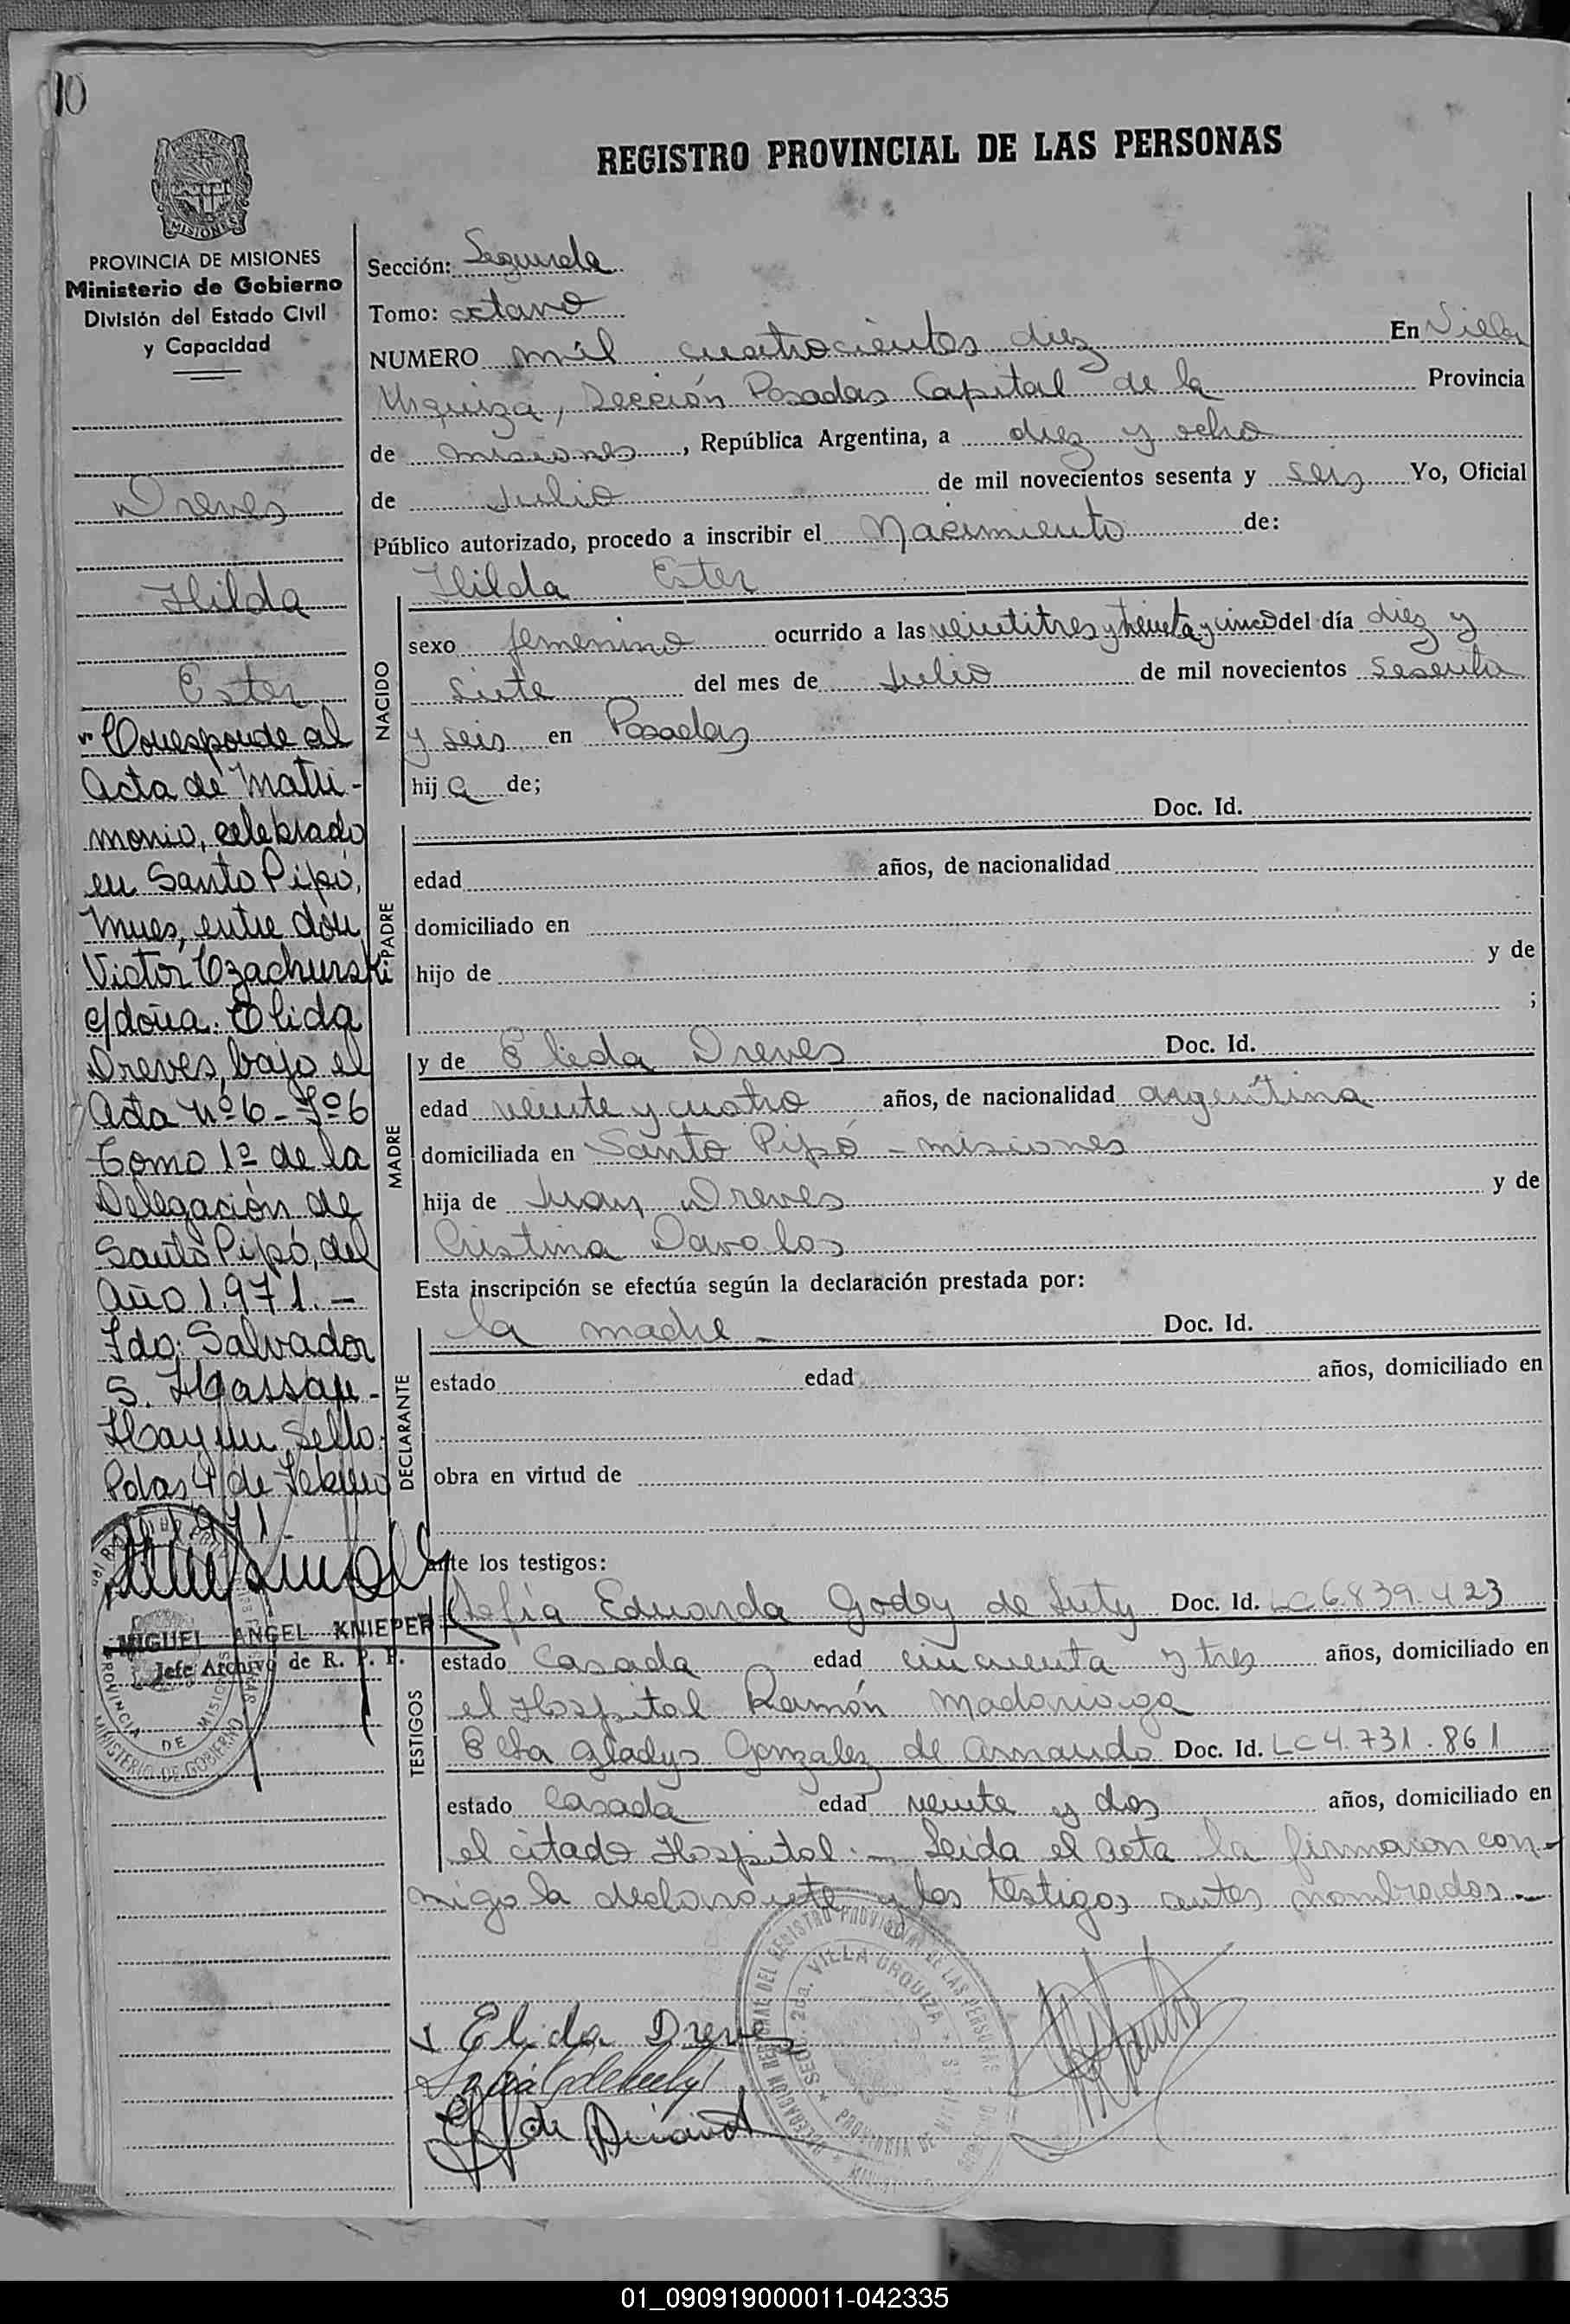 10
REGISTRO PROVINCIAL DE LAS PERSONAS
MISIONES
PROVINCIA DE MISIONES
Ministerio de Gobierno
División del Estado Civil
y Capacidad
Dreves
Hilda
Ester
Corresponde al
Acta de Matri-
monio, celebrado
en Santo Pipó,
Mnes, entre don
Victor Czachurski
c/doña. Elida
Dreves, bajo el
Acta Nº 6 - Fº 6
Tomo 1º de la
Delegación de
Santo Pipó, del
Año 1.971. -
Fdo: Salvador
S. Hassan -
Hay un Sello.
Pdas 4 de Febrero
1971.-
MIGUEL ANGEL KNIEPER
Jefe Archivo de R. P. P.
PROVINCIA DE MISIONES
MINISTERIO DE GOBIERNO
Sección: Segunda
Tomo: octavo
NUMERO mil cuatrocientos diez En Villa
Urquiza, Sección Posadas Capital de la Provincia
de Misiones, República Argentina, a diez y ocho
de Julio de mil novecientos sesenta y seis Yo, Oficial
Público autorizado, procedo a inscribir el Nacimiento de:
Hilda Ester
NACIDO
sexo femenino ocurrido a las veintitres y treinta y cinco del día diez y
siete del mes de Julio de mil novecientos sesenta
y seis en Posadas
hija de;
PADRE
Doc. Id.
edad años, de nacionalidad
domiciliado en
hijo de y de
;
MADRE
y de Elida Dreves Doc. Id.
edad veinte y cuatro años, de nacionalidad argentina
domiciliada en Santo Pipó - misiones
hija de Juan Dreves y de
Cristina Davalos
Esta inscripción se efectúa según la declaración prestada por:
DECLARANTE
la madre - Doc. Id.
estado edad años, domiciliado en
obra en virtud de
ante los testigos:
TESTIGOS
Sofía Eduarda Godoy de Doc. Id. LC 6.839.423
estado Casada edad cincuenta y tres años, domiciliado en
el Hospital Ramón Madariaga
Elsa Gladys Gonzalez de Doc. Id. LC 4.731.861
estado Casada edad veinte y dos años, domiciliado en
el citado Hospital. - Leida el acta la firmaron con-
migo la declarante y los testigos antes nombrados. -
Elida Dreves
DELEGACION REGIONAL DEL REGISTRO PROVINCIAL DE LAS PERSONAS
SECC. 2da. VILLA URQUIZA
PROVINCIA DE MISIONES
01_090919000011-042335